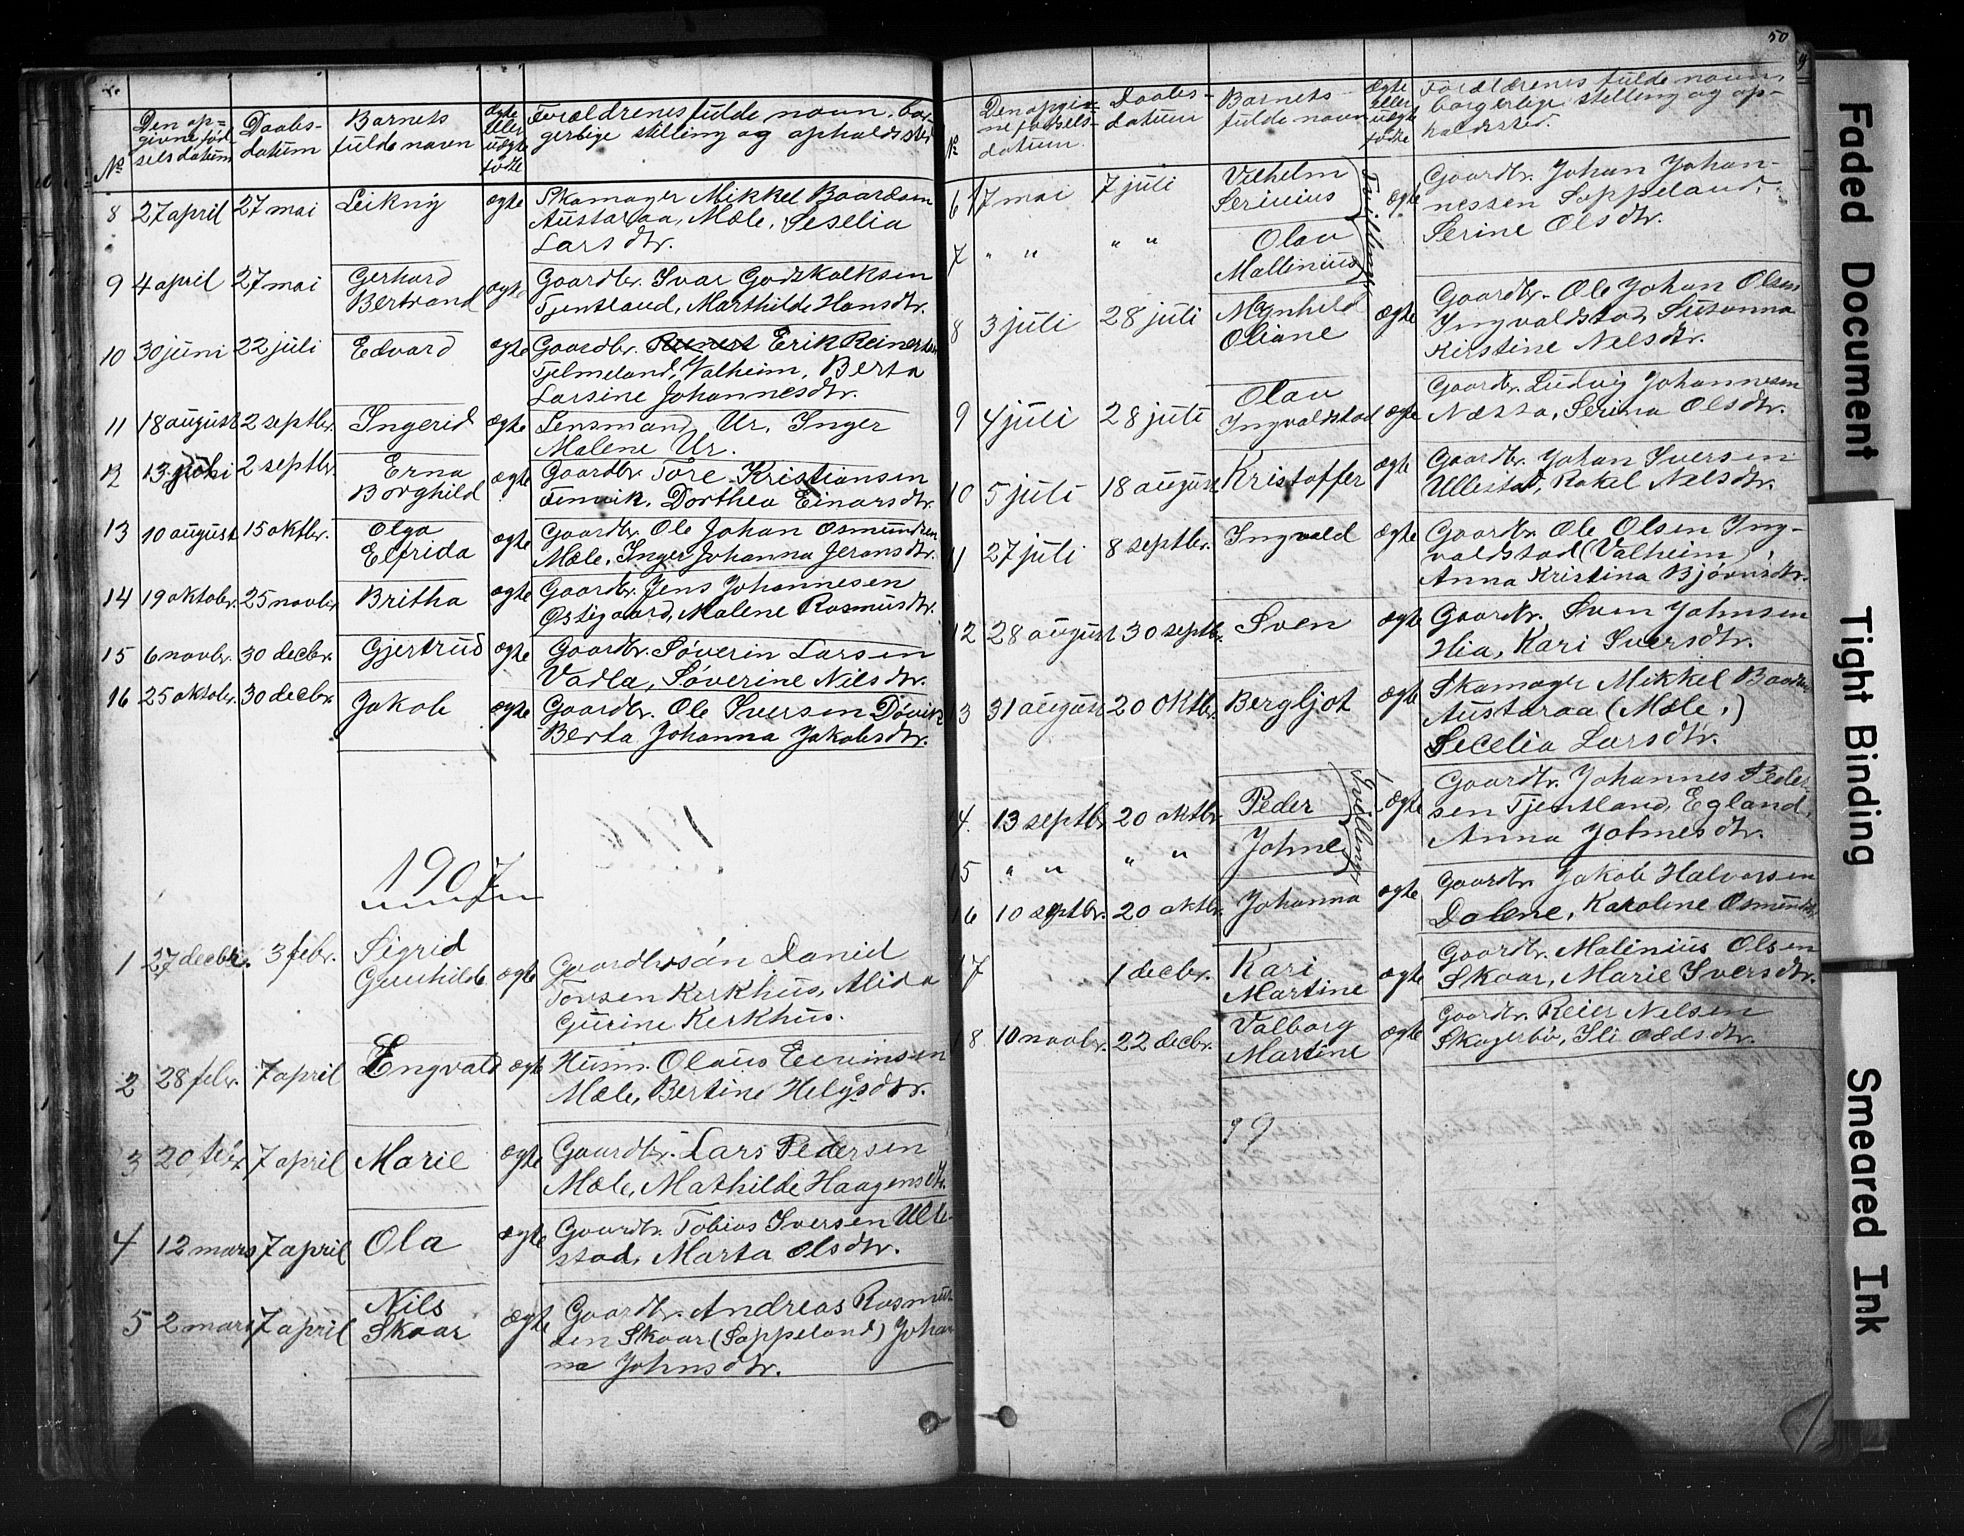 No
Den op=
givne fød
selsdatum
Daabs-
datum
Barnets
fulde navn
Ægte
eller
uægte
fødte
Forældrenes fulde navn, bor
gerlige stilling og opholdssted
8 27 april 27 mai Leikny ægte Skomager Mikkel Baardsen
Austaraa, Mæle, Seselia
Larsdtr.
9 4 april 27 mai Gerhard ægte Gaardbr. Ivar Godskalksen
Bertrand Tjentland, Marthilde Hansdtr.
10 30 juni 22 juli Edvard ægte Gaardbr. Erik Reinertsen
Tjelmeland, Valheim, Berta
Larsine Johannesdtr.
11 18 august 2 septbr. Ingerid ægte Lensmand Ur, Inger
Malene Ur.
12 13 2 septbr. Erna ægte Gaardbr. Tore Kristiansen
Borghild Dorthea Einarsdtr.
13 10 august 15 oktbr. Olga ægte Gaardbr. Ole Johan Osmundsen
Elfrida Mæle, Inger Johanna Jeransdtr.
14 19 oktobr. 25 novbr. Britha ægte Gaardbr. Jens Johannesen
Østigaard, Malene Rasmusdtr.
15 6 novbr. 30 decbr. Gjertrud ægte Gaardbr. Søverin Larsen
Vadla, Søverine Nilsdtr.
16 25 oktobr. 30 decbr. Jakob ægte Gaardbr. Ole Iversen Døvik
Berta Johanna Jakobsdtr.
1907
1 27 decbr. 3 febr. Sigrid ægte Gaardbrsøn Daniel
Gunhilde Torsen Kerkhus, Alida
Gurine Kerkhus.
2 28 febr. 7 april Engvald ægte Husm. Olaus
Mæle, Bertine Helgsdtr.
3 20 7 april Marie ægte Gaardbr. Lars Pedersen
Mæle, Mathilde Haagensdtr.
4 12 mars 7 april Ola ægte Gaardbr. Tobias Iversen Ulle-
stad, Marta Olsdtr.
5 2 mars 7 april Nils ægte Gaardbr. Andreas Rasmus-
Skaar sen Skaar (Sappeland) Johan
na Johnsdtr.
50
No
Den opgiv=
ne fødsels-
datum.
Daabs-
datum
Barnets
fulde navn
Ægte
eller
uægte
fødte
Forældrenes fulde navn,
borgerlige stilling og op-
holdssted.
6 17 mai 7 juli Vilhelm ægte Gaardbr. Johan Johan-
Serinius nessen Sappeland,
Serine Olsdtr.
7 " " " " Olav
Mallinius
Tvillinger
8 3 juli 28 juli Mynhild ægte Gaardbr. Ole Johan Olsen
Oliane Ingvaldstad, Susanna
Kirstine Nelsdtr.
9 4 juli 28 juli Olav ægte Gaardbr. Ludvig Johannesen
Ingvaldstad Næssa, Serina Olsdtr.
10 5 juli 18 august Kristoffer ægte Gaardbr. Johan Iversen
Ullestad, Rakel Nelsdtr.
11 27 juli 8 septbr. Ingvald ægte Gaardbr. Ole Olsen Ing-
valdstad (Valheim)
Anna Kristina Bjørnsdtr.
12 28 august 30 septbr. Sven ægte Gaardbr. Sven Johnsen
Hia, Kari Iversdtr.
13 31 august 20 oktbr. Bergljot ægte Skomager Mikkel Baardsen
Austaraa (Mæle,)
Secelia Larsdtr.
14. 13 septbr. 20 oktbr. Peder ægte Gaardbr. Johannes Peder-
sen Tjentland, Egland,
Anna Johnesdtr.
15 " " " " Johne
Tvillinger
16 10 septbr. 20 oktbr. Johanna ægte Gaardbr. Jakob Halvorsen
Dalene, Karoline Osmundsdtr.
17 1 decbr. Kari ægte Gaardbr. Malinius Olsen
Martine Skaar, Marie Iversdtr.
18 10 novbr. 22 decbr. Valborg ægte Gaardbr. Reier Nelsen
Martine Skagerbø, Sli Oddsdtr.
Faded Document
Tight Binding
Smeared Ink